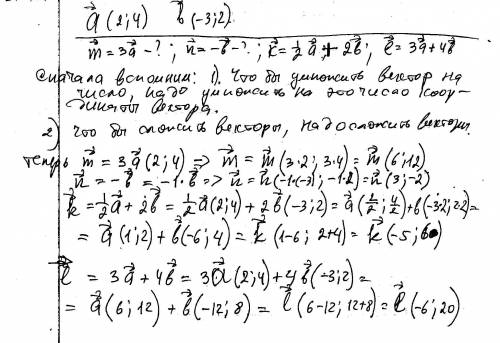 a⃗ (2;4) b⃗ (-3;2)
m⃗ = 3a⃗ - ? ; n⃗ = -b⃗ - ? ; k⃗ = 1/2 a⃗ + 2b⃗ ; ℓ⃗ = 3a⃗ + 4b⃗
Сначала вспомним: 1). Что бы умножить вектор на
число, надо умножить на это число коор-
динаты вектора.
2) Что бы сложить векторы, надо сложить
теперь m⃗ = 3a⃗ (2;4) => m⃗ = m⃗ (3·2; 3·4) = m⃗ (6;12)
n⃗ = -b⃗ = -1·b⃗ => n⃗ = n⃗ (-1·(-3); -1·2) = n⃗ (3;-2)
k⃗ = 1/2 a⃗ + 2b⃗ = 1/2 a⃗ (2;4) + 2b⃗ (-3;2) = a⃗ (2/2; 4/2) + b⃗ (-3·2; 2·2) =
= a⃗ (1;2) + b⃗ (-6;4) = k⃗ (1-6; 2+4) = k⃗ (-5; 6)
ℓ⃗ = 3a⃗ + 4b⃗ = 3a⃗ (2;4) + 4b⃗ (-3;2) =
= a⃗ (6;12) + b⃗ (-12;8) = ℓ⃗ (6-12; 12+8) = ℓ⃗ (-6;20)